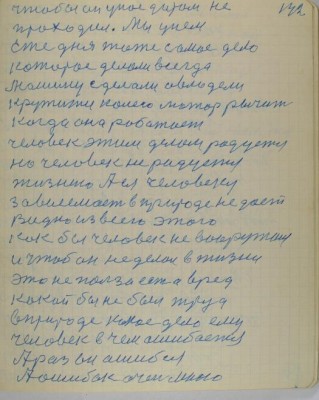 чтобы он упое даром не 172
проходил. Мы учем
сте дня тоже самое дело
которое делаем всегда
машину сделали овлодели
крутит колесо мотор рычит
когда она работает
человек этим делом радуется
но человек не радуется
жизнию Ася человеку
зависемает в природе не дает
видно из всего этого
как бы человек не вооружин
и чтоб он не делал в жизни
это не польза ест а вред
какой бы не был труд
в природе какое дело ему
человек в чем ошибается
А раз он ошибся
А ошибок очин много